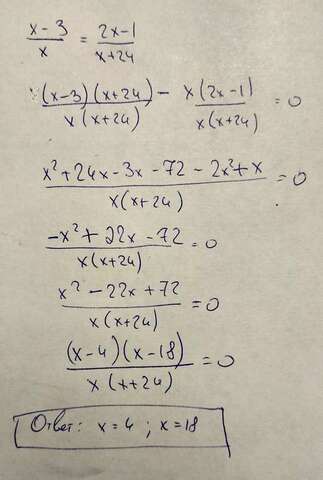 (x-3)/x = (2x-1)/(x+24)
((x-3)(x+24))/(x(x+24)) - (x(2x-1))/(x(x+24)) = 0
(x²+24x-3x-72-2x²+x)/(x(x+24)) = 0
(-x²+22x-72)/(x(x+24)) = 0
(x²-22x+72)/(x(x+24)) = 0
((x-4)(x-18))/(x(x+24)) = 0
Ответ: x=4; x=18